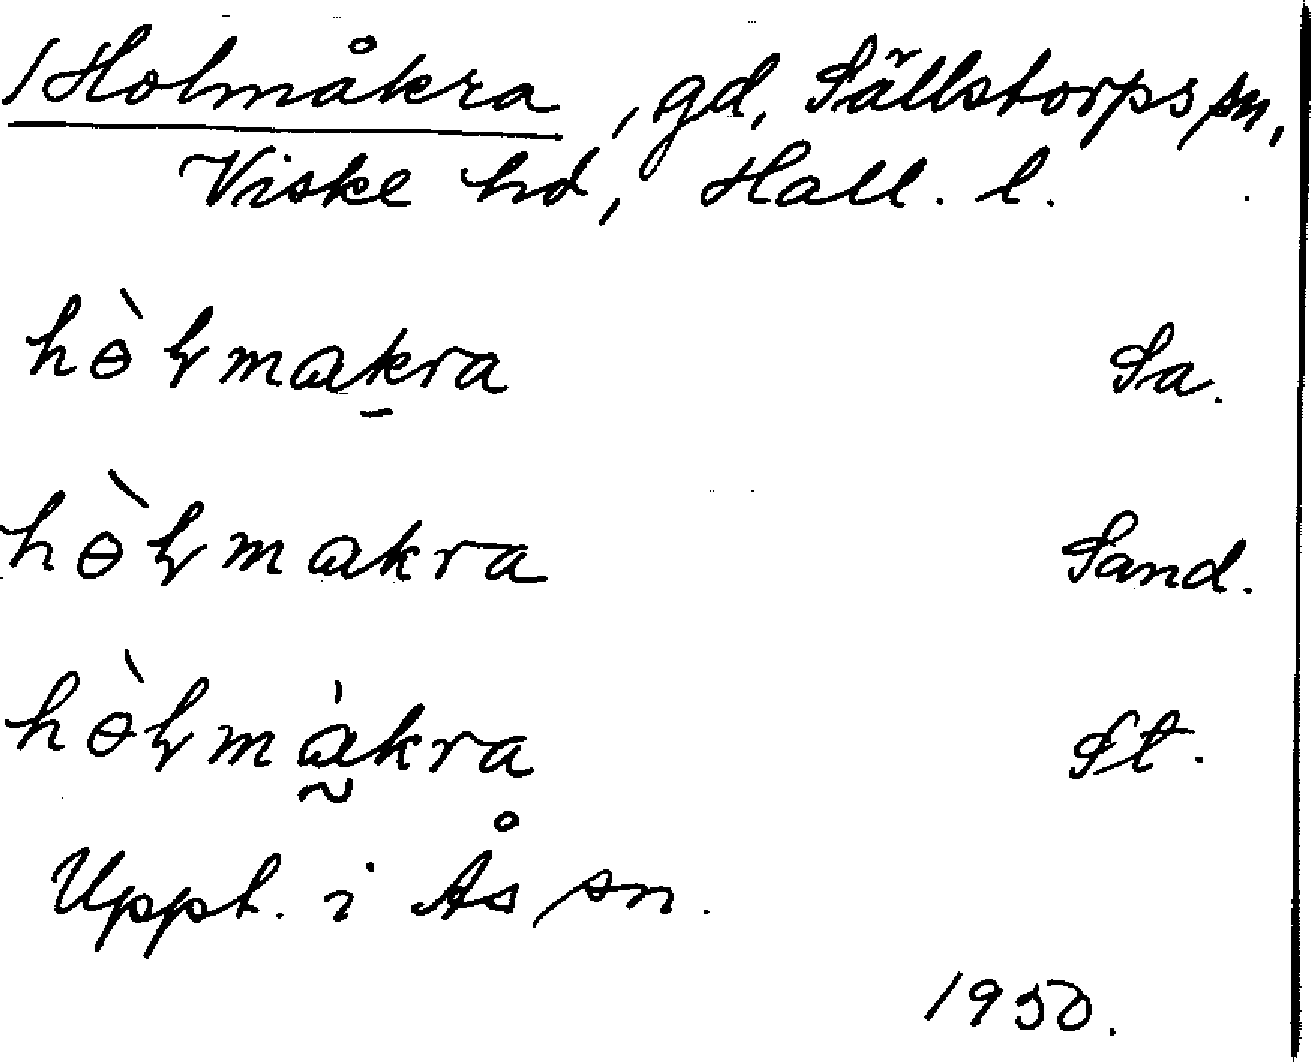 Holmåkra, gd, Sällstorps sn,
Viske hd, Hall. l.
hɵ̀ɫmakra Sa.
hɵ̀ɫmakra Sand.
hɵ̀ɫmàkra St.
Uppt. i Ås sn.
1950.